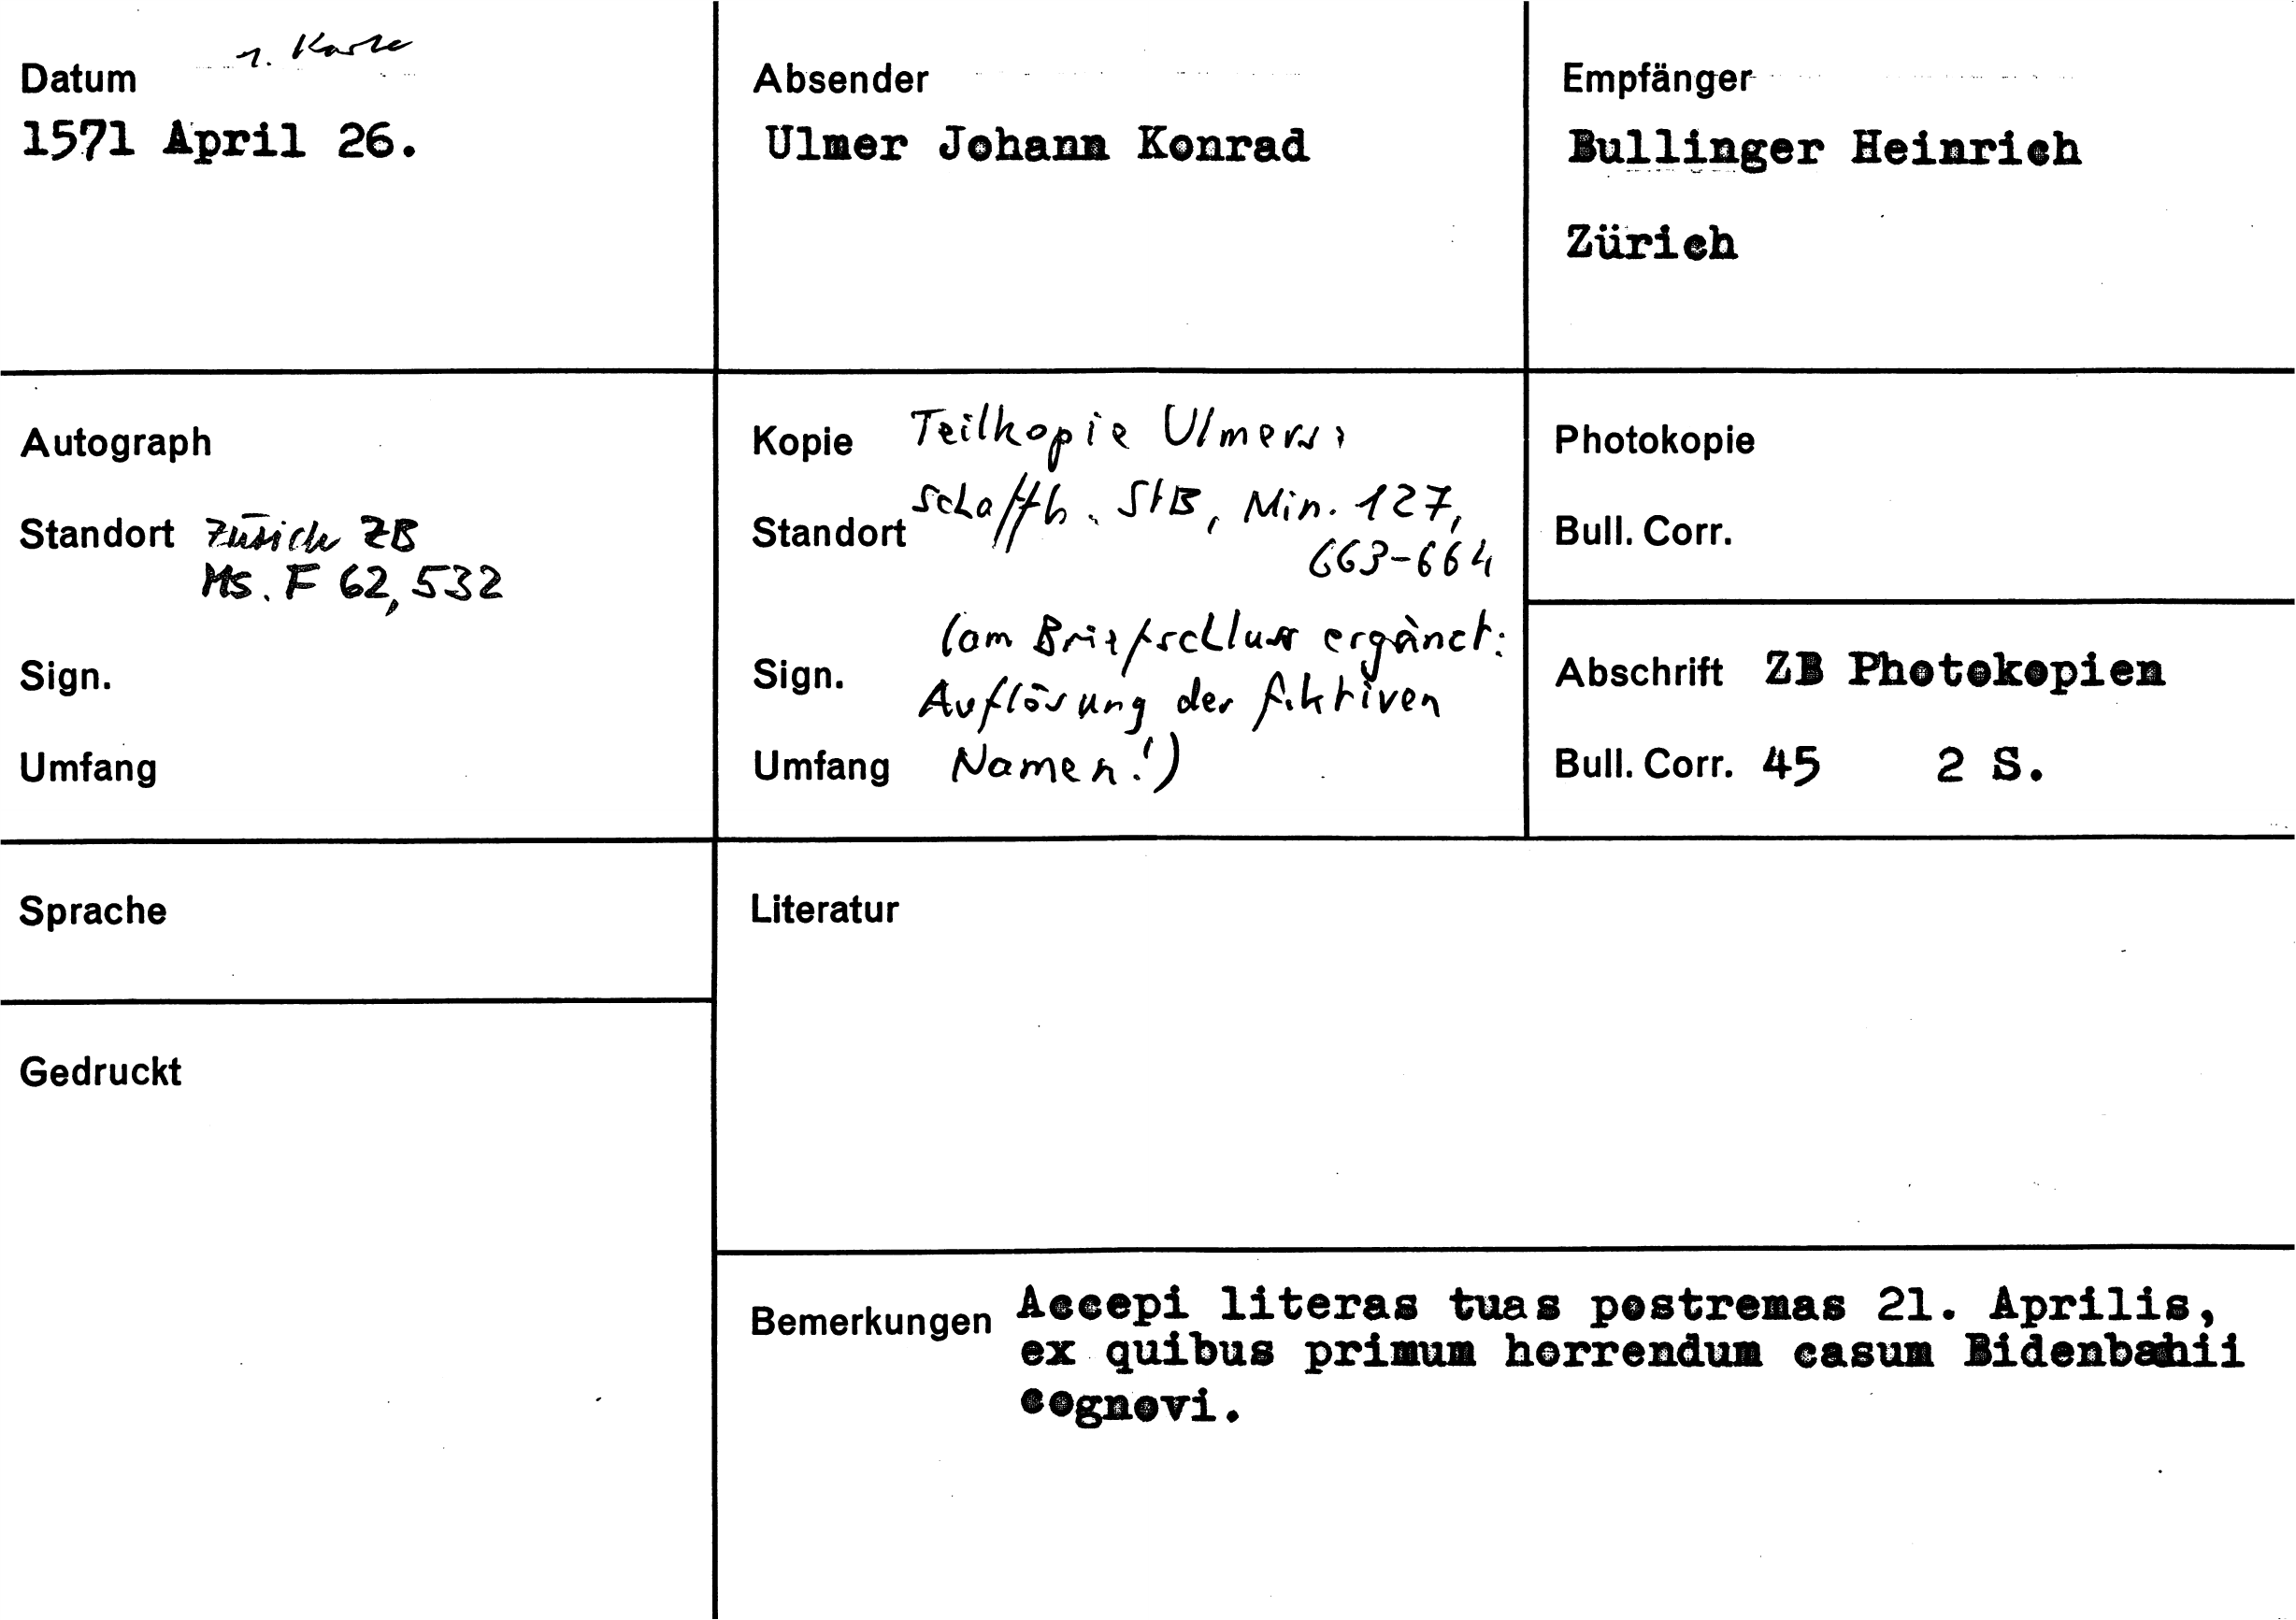 Datum 1. Karte
1571 April 26.
Absender
Ulmer Johann Konrad
Empfänger
Bullinger Heinrich
Zürich
Autograph
Standort Zürich ZB
Ms. F 62, 532
Sign.
Umfang
Kopie Teilkopie Ulmers:
Standort Schaffh. StB, Min. 127,
663-664
Sign. (am Briefschluss ergänzt:
Auflösung der fiktiven
Umfang Namen!)
Photokopie
Bull. Corr.
Abschrift ZB Photokopien
Bull. Corr. 45 2 S.
Sprache
Literatur
Gedruckt
Bemerkungen Accepi literas tuas postremas 21. Aprilis,
ex quibus primum horrendum casum Bidenbahii
cognovi.